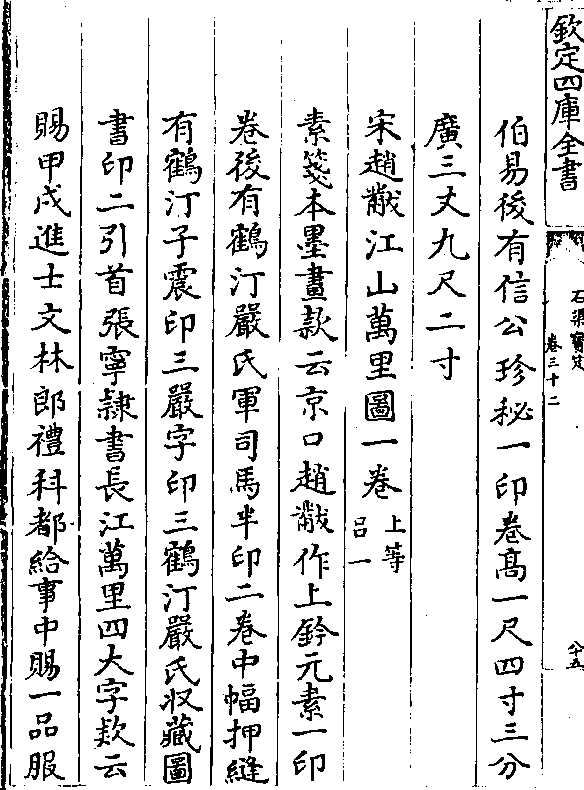 欽定四庫全書
石渠寶笈
卷三十二
十五
伯易後有信公珍秘一印卷髙一尺四寸三分
廣三丈九尺二寸
宋趙黻江山萬里圖一卷 上等 吕一
素箋本墨畫款云京口趙黻作上鈐元素一印
卷後有鶴汀嚴氏軍司馬半印二卷中幅押縫
有鶴汀子震印三嚴字印三鶴汀嚴氏収藏圖
書印二引首張寧隷書長江萬里四大字欵云
賜甲戌進士文林郎禮科都給事中賜一品服